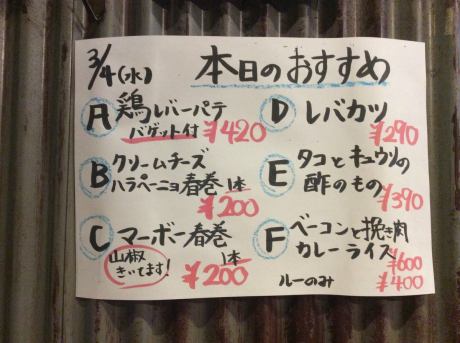 3/4(水) 本日のおすすめ
A 鶏レバーパテ
バゲット付 ¥420
B クリームチーズ
ハラペーニョ春巻 1本
¥200
C マーボー春巻
山椒
きいてます! 1本
¥200
D レバカツ
¥290
E タコとキュウリの
酢のもの
¥390
F ベーコンと挽き肉
カレーライス
¥600
ルーのみ ¥400